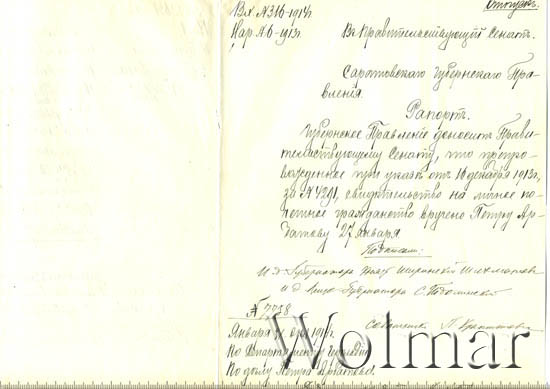 Вх. №316-1914г.
Отпускъ.
Нар. №6-1913г.
Въ Правительствующiй Сенатъ.
Саратовскаго Губернскаго Пра-
вленiя
Рапортъ.
Губернское Правленiе доноситъ Прави-
тельствующему Сенату, что препро-
вожденное при указѣ отъ 16 декабря 1913г.
за № 4281, свидѣтельство на личное по-
четное гражданство вручено Петру Ар-
датову 27 января.
Подписали:
И д Губернатора Князь Ширинскiй Шихматовъ
И д Вице Губернатора С. Подолинскiй
Совѣтникъ П.
№ 7738
Января 31 дня 1914г.
По Департаменту
По дѣлу Петра Ардатова.
Wolmar